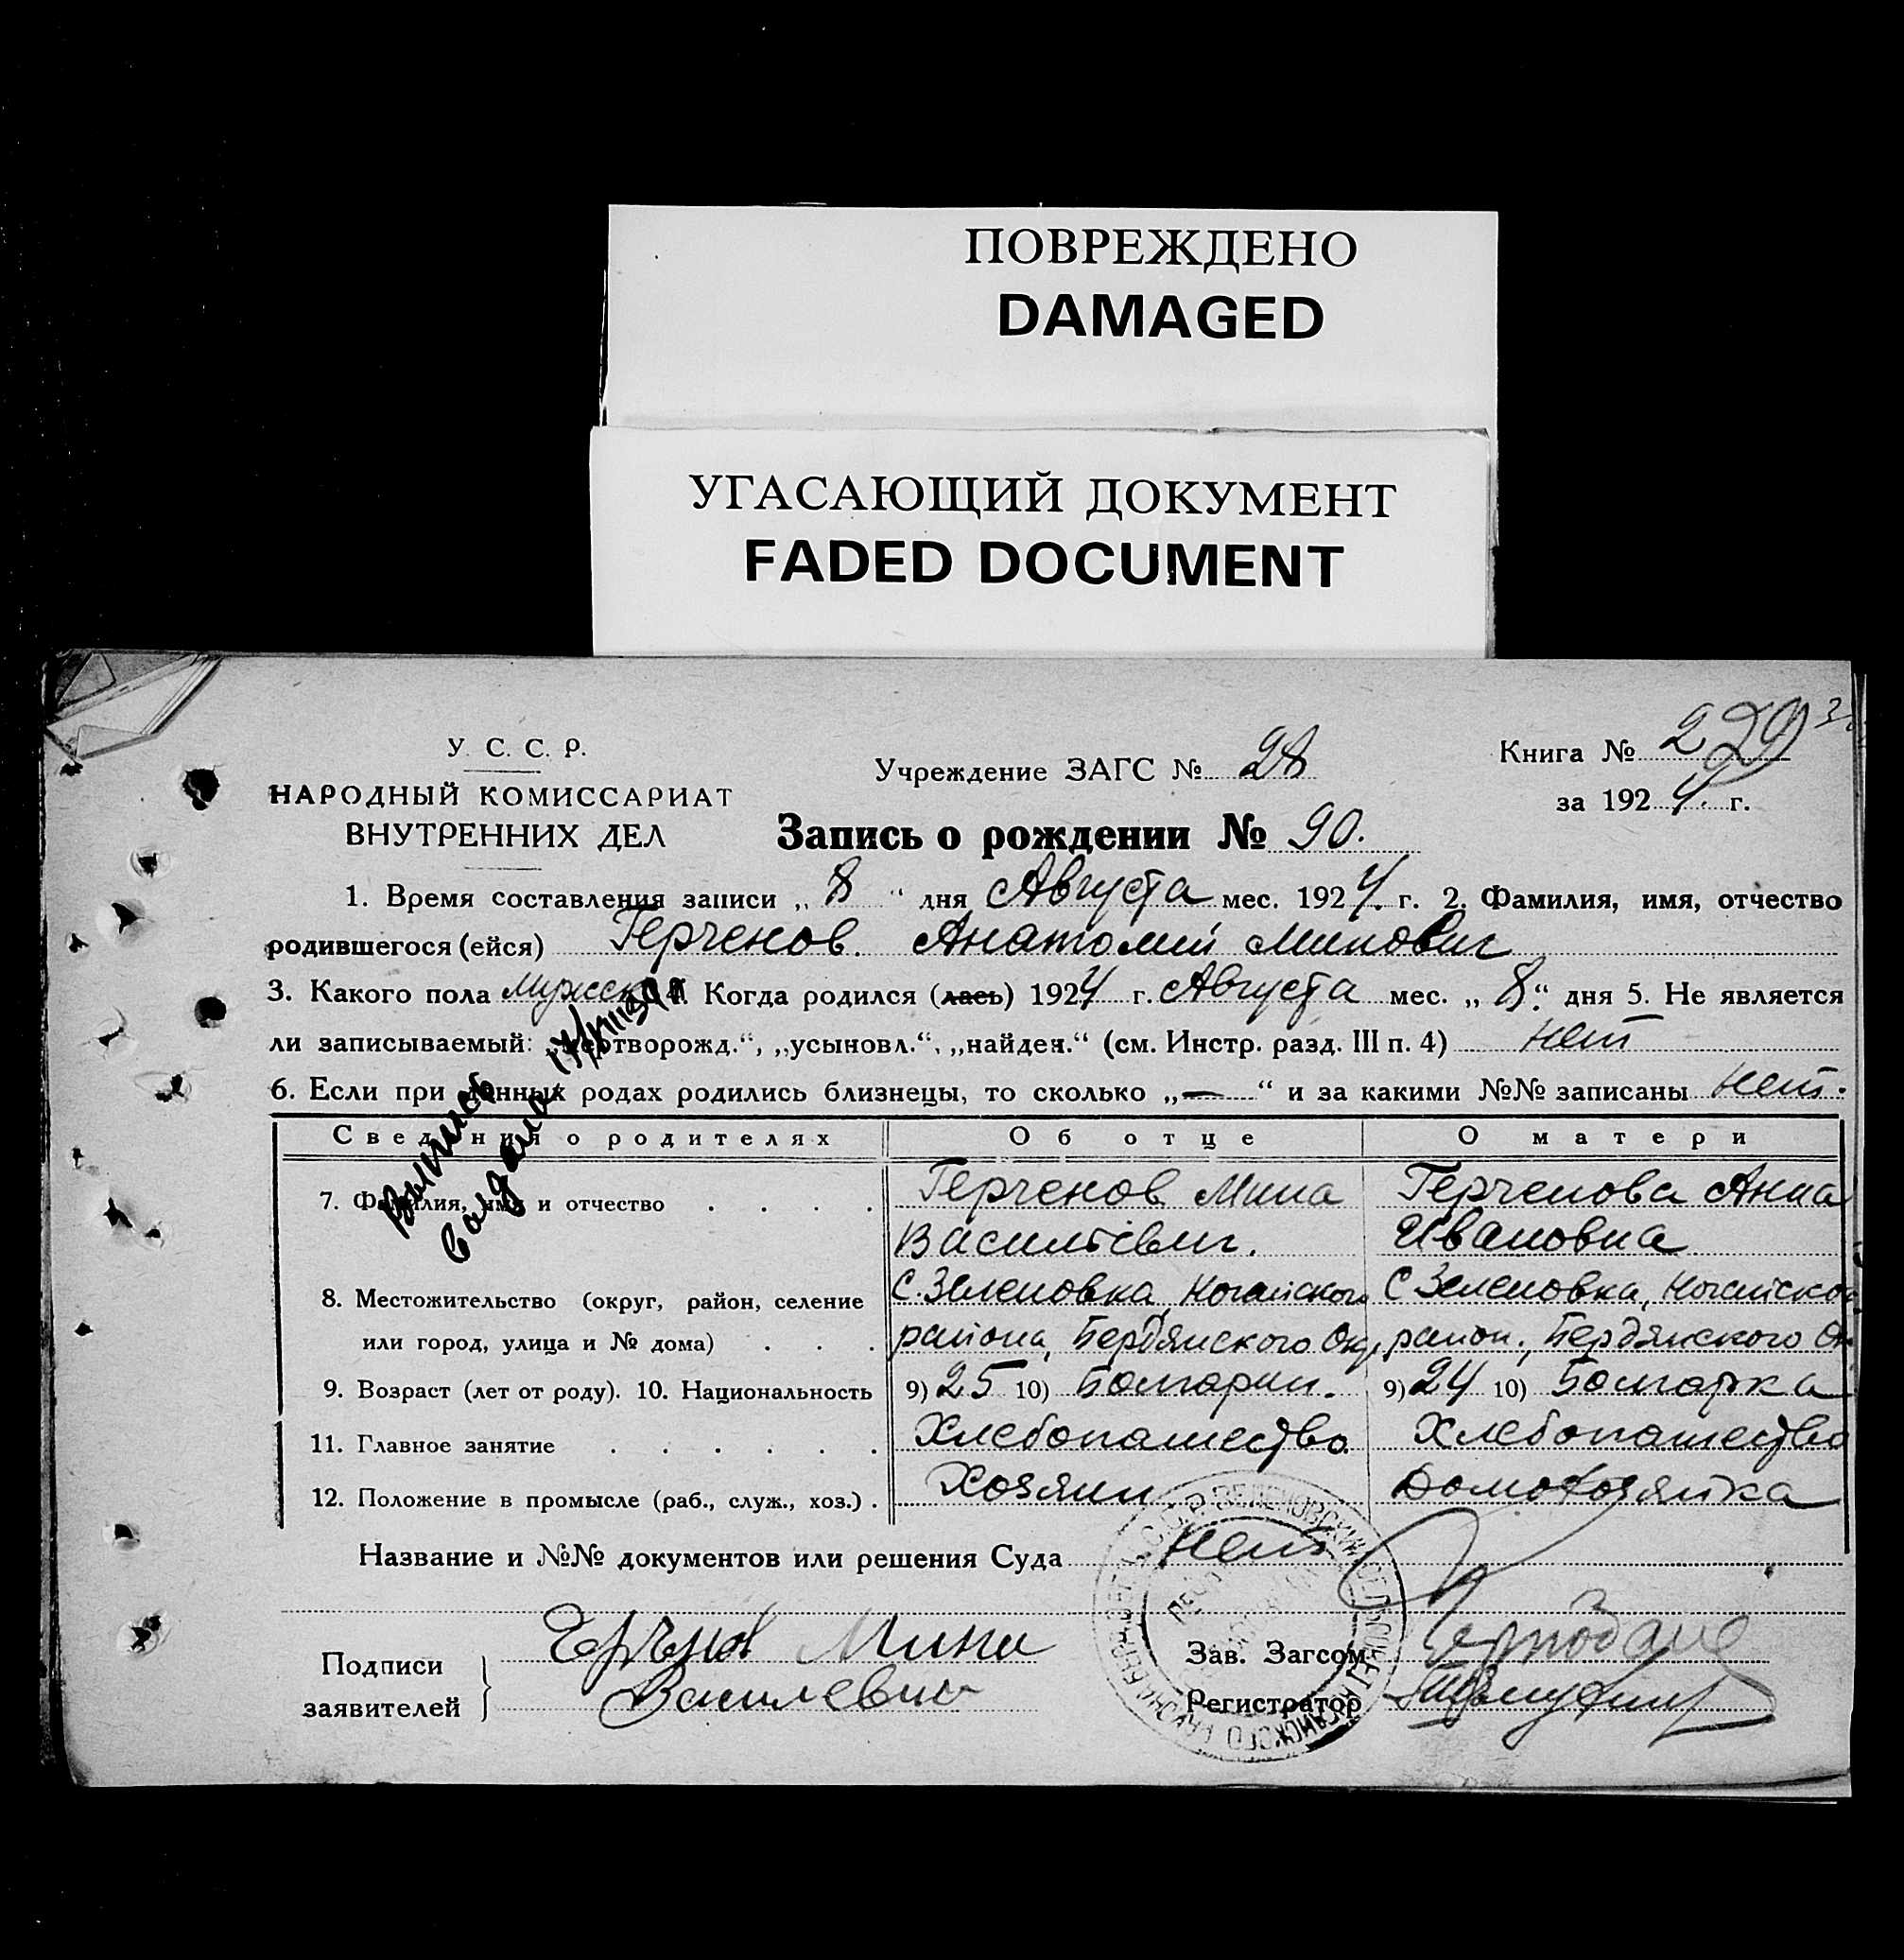 ПОВРЕЖДЕНО
DAMAGED
УГАСАЮЩИЙ ДОКУМЕНТ
FADED DOCUMENT
У. С. С. Р.
НАРОДНЫЙ КОМИССАРИАТ
ВНУТРЕННИХ ДЕЛ
Учреждение ЗАГС № 28
Книга № 229
за 1924 г.
Запись о рождении № 90.
1. Время составления записи „ 8 “ дня Августа мес. 1924 г. 2. Фамилия, имя, отчество
родившегося (ейся) Герченов. Анатолий Минович
3. Какого пола мужск 4. Когда родился (лась) 1924 г. Августа мес. „ 8 “ дня 5. Не является
ли записываемый: „мертворожд.“, „усыновл.“, „найден.“ (см. Инстр. разд. III п. 4) нет
6. Если при данных родах родились близнецы, то сколько „—“ и за какими №№ записаны нет.
Выпись
Сведения о родителях Об отце О матери
7. Фамилия, имя и отчество Герченов Мина Герченова Анна
Васильевич. Ивановна
8. Местожительство (округ, район, селение С. Зеленовка, Ногайского С Зеленовка, Ногайского
или город, улица и № дома) района, Бердянского Окр, район., Бердянского Ок
9. Возраст (лет от роду). 10. Национальность 9) 25 10) Болгарин. 9) 24 10) Болгарка
11. Главное занятие Хлебопашество Хлебопашество
12. Положение в промысле (раб., служ., хоз.) Хозяин Домохозяйка
Название и №№ документов или решения Суда нет
Подписи
заявителей
Мина
Василевич
Зав. Загсом
Регистратор